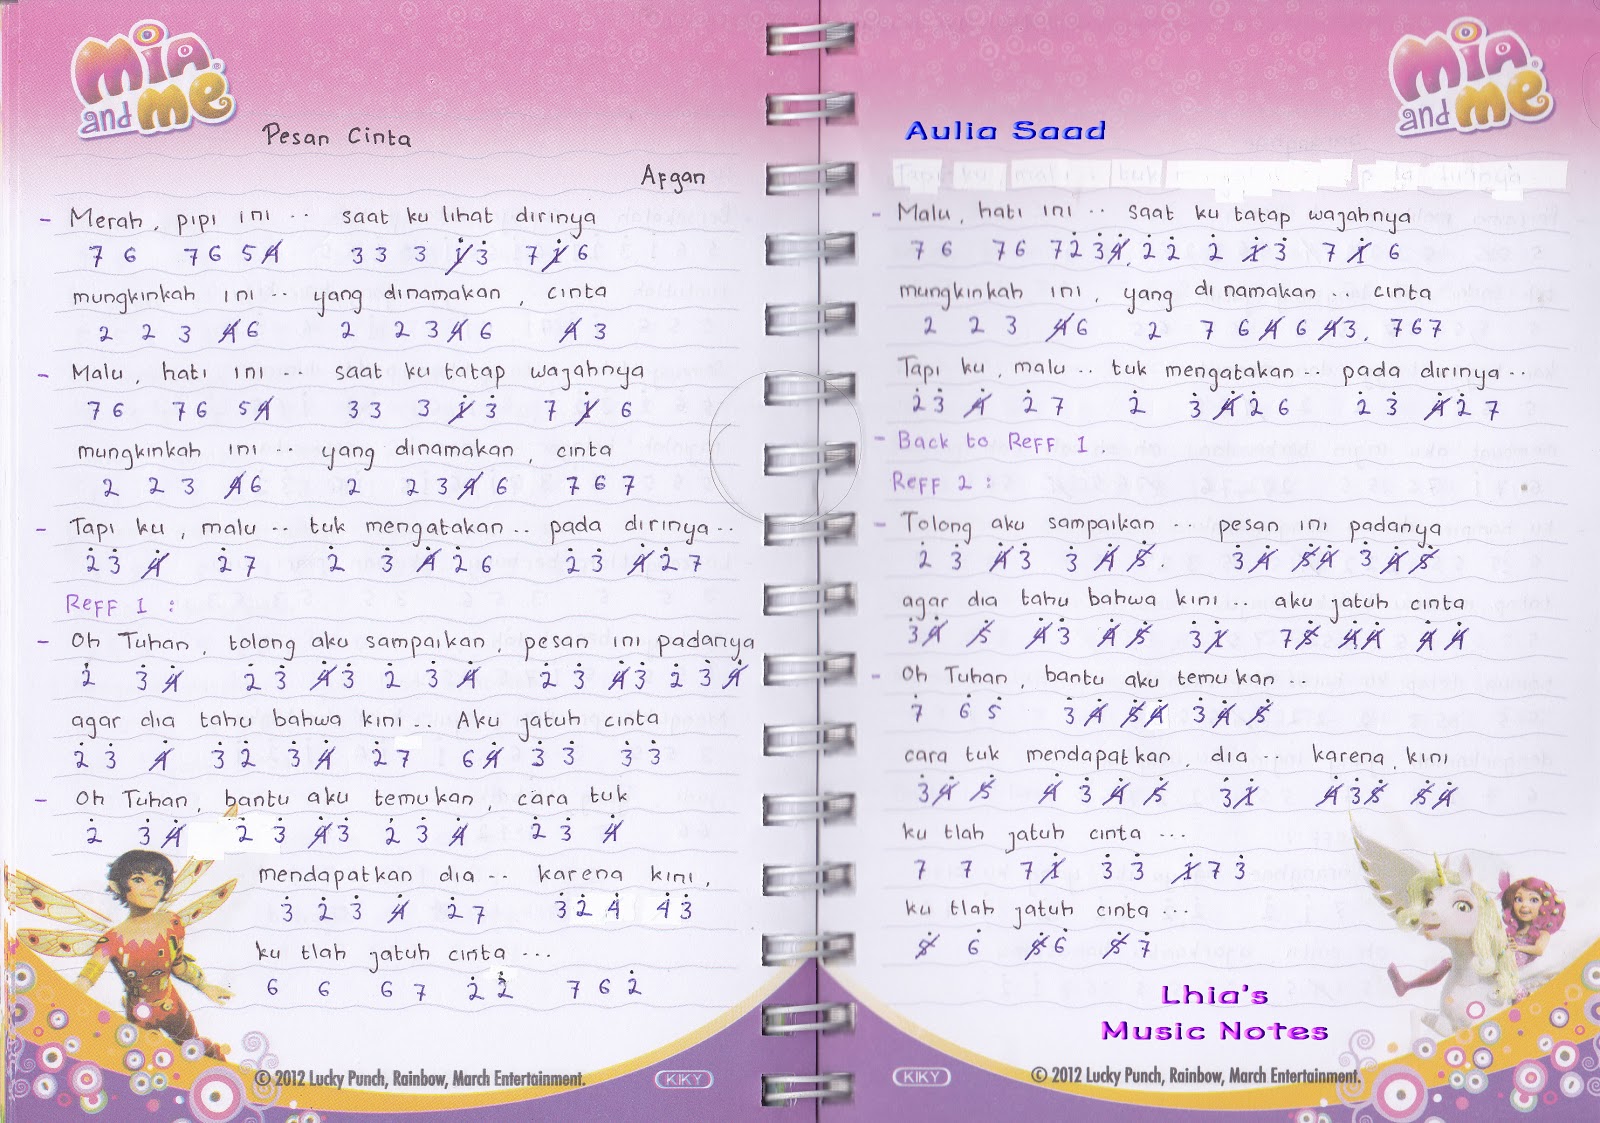 mia and me
Pesan Cinta
Afgan
- Merah, pipi ini .. saat ku lihat dirinya
7 6 7 6 5 4̸ 3 3 3 1̸̇ 3̇ 7 1̸̇ 6
mungkinkah ini .. yang dinamakan, cinta
2 2 3 4̸ 6 2 2 3 4̸ 6 4̸ 3
- Malu, hati ini .. saat ku tatap wajahnya
7 6 7 6 5 4̸ 3 3 3 1̸̇ 3̇ 7 1̸̇ 6
mungkinkah ini .. yang dinamakan, cinta
2 2 3 4̸ 6 2 2 3 4̸ 6 7 6 7
- Tapi ku, malu .. tuk mengatakan .. pada dirinya ..
2̇ 3̇ 4̸̇ 2̇ 7 2̇ 3̇ 4̸̇ 2̇ 6 2̇ 3̇ 4̸̇ 2̇ 7
Reff 1 :
- Oh Tuhan, tolong aku sampaikan, pesan ini padanya
2̇ 3̇ 4̸̇ 2̇ 3̇ 4̸̇ 3̇ 2̇ 3̇ 4̸̇ 2̇ 3̇ 4̸̇ 3̇ 2̇ 3̇ 4̸̇
agar dia tahu bahwa kini .. Aku jatuh cinta
2̇ 3̇ 4̸̇ 3̇ 2̇ 3̇ 4̸̇ 2̇ 7 6 4̸̇ 3̇ 3̇ 3̇ 3̇
- Oh Tuhan, bantu aku temukan, cara tuk
2̇ 3̇ 4̸̇ 2̇ 3̇ 4̸̇ 3̇ 2̇ 3̇ 4̸̇ 2̇ 3̇ 4̸̇
mendapatkan dia .. karena kini,
3̇ 2̇ 3̇ 4̸̇ 2̇ 7 3̇ 2̇ 4̇ 4̇ 3̇
ku tlah jatuh cinta ...
6 6 6 7 2̇ 2̇ 7 6 2̇
© 2012 Lucky Punch, Rainbow, March Entertainment.
KIKY
mia and me
Aulia Saad
- Malu, hati ini .. saat ku tatap wajahnya
7 6 7 6 7 2̇ 3̇ 4̸̇, 2̇ 2̇ 2̇ 1̸̇ 3̇ 7 1̸̇ 6
mungkinkah ini, yang dinamakan .. cinta
2 2 3 4̸ 6 2 7 6 4̸ 6 4̸ 3, 7 6 7
Tapi ku, malu .. tuk mengatakan .. pada dirinya ..
2̇ 3̇ 4̸̇ 2̇ 7 2̇ 3̇ 4̸̇ 2̇ 6 2̇ 3̇ 4̸̇ 2̇ 7
- Back to Reff 1.
Reff 2 :
- Tolong aku sampaikan .. pesan ini padanya
2̇ 3̇ 4̸̇ 3̇ 3̇ 4̸̇ 5̸̇. 3̇ 4̸̇ 5̸̇ 4̸̇ 3̇ 4̸̇ 5̸̇
agar dia tahu bahwa kini .. aku jatuh cinta
3̇ 4̸̇ 5̸̇ 4̸̇ 3̇ 4̸̇ 5̸̇ 3̇ 1̸̇ 7 5̸̇ 4̸̇ 4̸̇ 4̸̇ 4̸̇
- Oh Tuhan, bantu aku temukan ..
7̇ 6̇ 5̇ 3̇ 4̸̇ 5̸̇ 4̸̇ 3̇ 4̸̇ 5̸̇
cara tuk mendapatkan, dia .. karena, kini
3̇ 4̸̇ 5̸̇ 4̸̇ 3̇ 4̸̇ 5̸̇ 3̇ 1̸̇ 4̸̇ 3̇ 5̸̇ 5̸̇ 4̸̇
ku tlah jatuh cinta ...
7 7 7 1̸̇ 3̇ 3̇ 1̸̇ 7 3̇
ku tlah jatuh cinta ...
5̸̇ 6̇ 5̸̇ 6̇ 5̸̇ 7̇
Lhia's
Music Notes
KIKY
© 2012 Lucky Punch, Rainbow, March Entertainment.